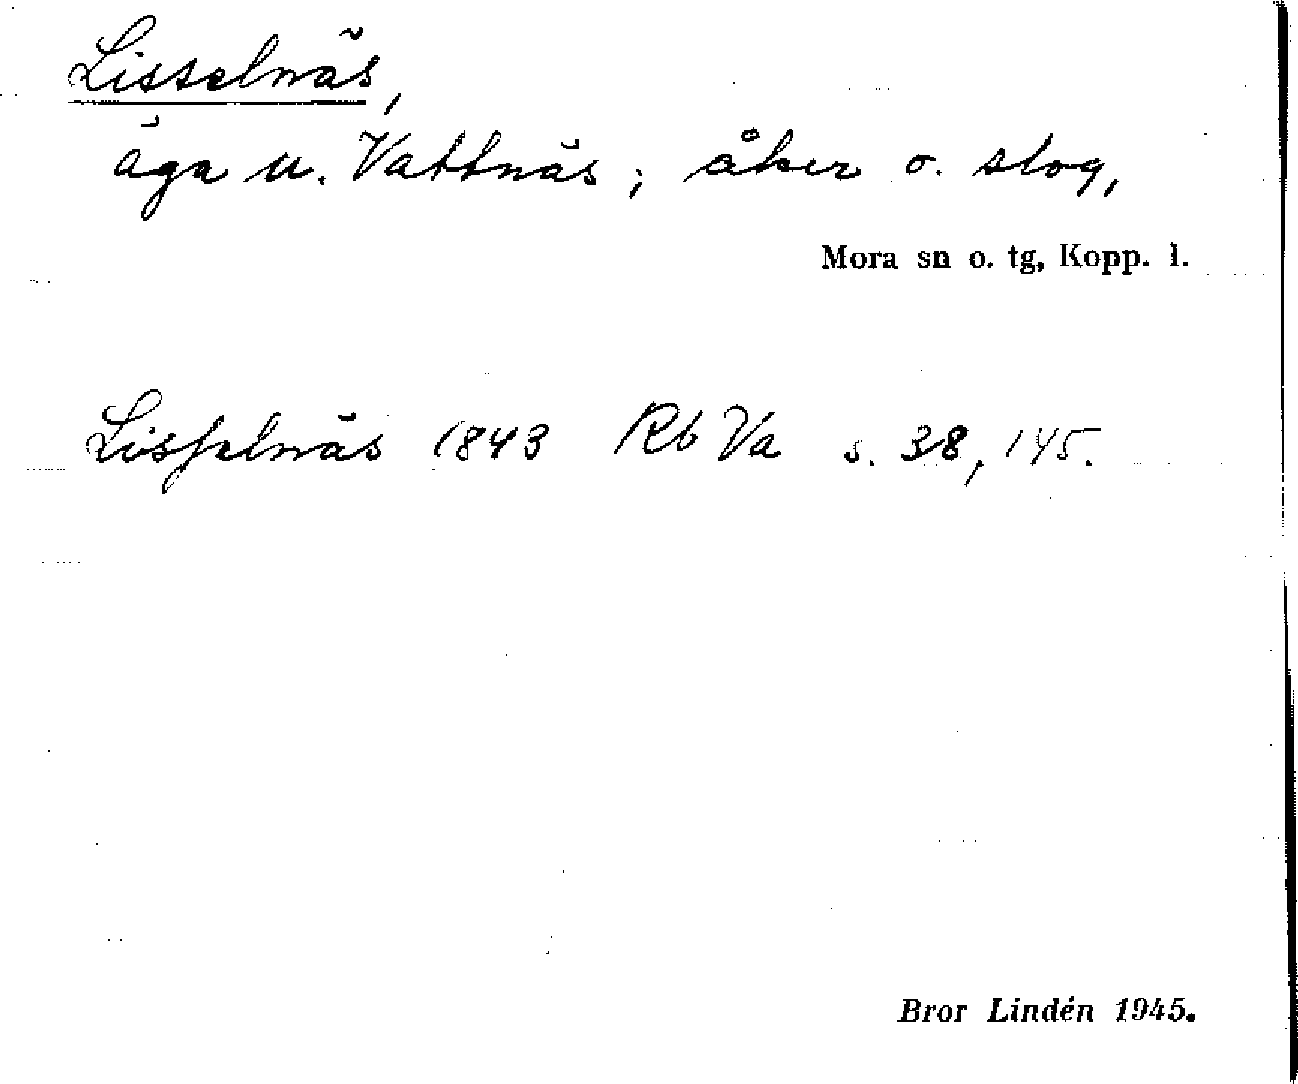 Lisselnäs,
äga u. Vattnäs; åker o. slog,
Mora sn o. tg, Kopp. l.
Lisſelnäs 1843 Rb Va s. 38, 145.
Bror Lindén 1945.